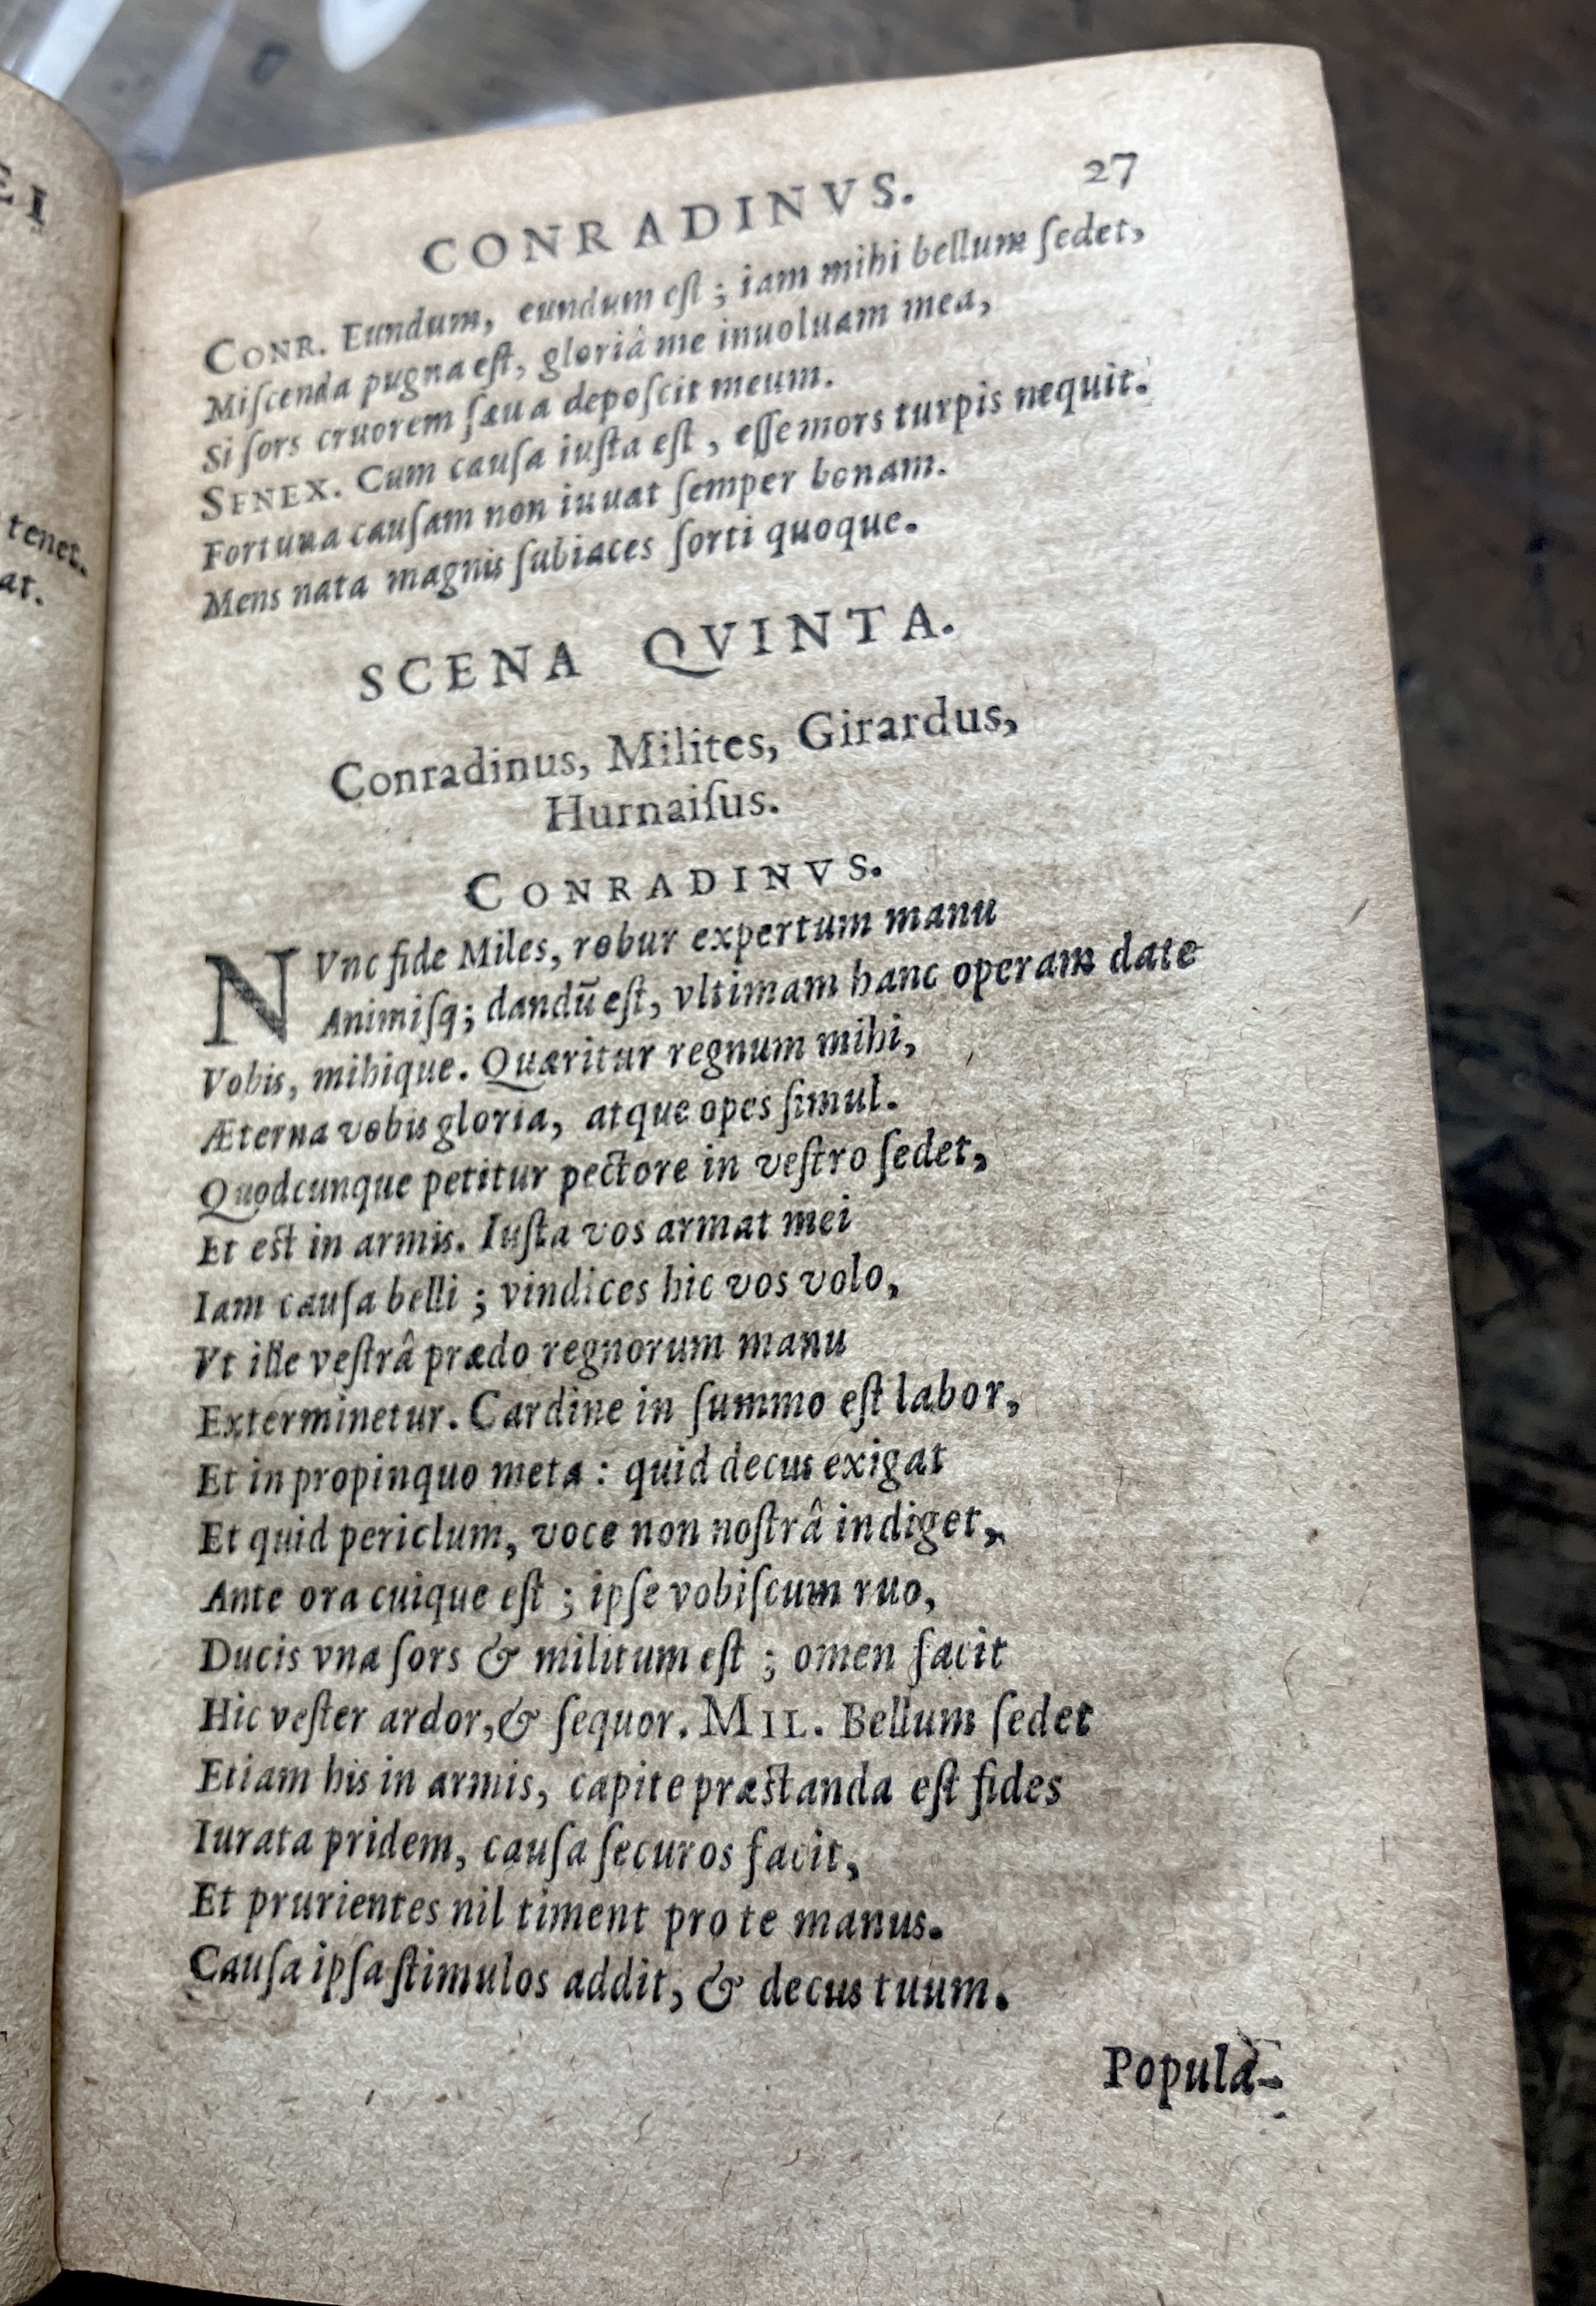 EI
tenet.
at.
CONRADINVS. 27
CONR. Eundum, eundum eſt ; iam mihi bellum ſedet,
Miſcenda pugna eſt, gloriâ me inuoluam mea,
Si ſors cruorem ſæua depoſcit meum.
SENEX. Cum cauſa iuſta eſt, eſſe mors turpis nequit.
Fortuna cauſam non iuuat ſemper bonam.
Mens nata magnis ſubiaces ſorti quoque.
SCENA QVINTA.
Conradinus, Milites, Girardus,
Hurnaiſus.
CONRADINVS.
NVnc fide Miles, robur expertum manu
Animiſq; dandū eſt, vltimam hanc operam date
Vobis, mihique. Quæritur regnum mihi,
Æterna vobis gloria, atque opes ſimul.
Quodcunque petitur pectore in veſtro ſedet,
Et est in armis. Iuſta vos armat mei
Iam cauſa belli ; vindices hic vos volo,
Vt ille veſtrâ prædo regnorum manu
Exterminetur. Cardine in ſummo eſt labor,
Et in propinquo meta : quid decus exigat
Et quid periclum, voce non noſtrâ indiget,
Ante ora cuique eſt ; ipſe vobiſcum ruo,
Ducis vna ſors & militum eſt ; omen facit
Hic veſter ardor, & ſequor. MIL. Bellum ſedet
Etiam his in armis, capite præstanda eſt fides
Iurata pridem, cauſa ſecuros facit,
Et prurientes nil timent pro te manus.
Cauſa ipſa ſtimulos addit, & decus tuum.
Popula-